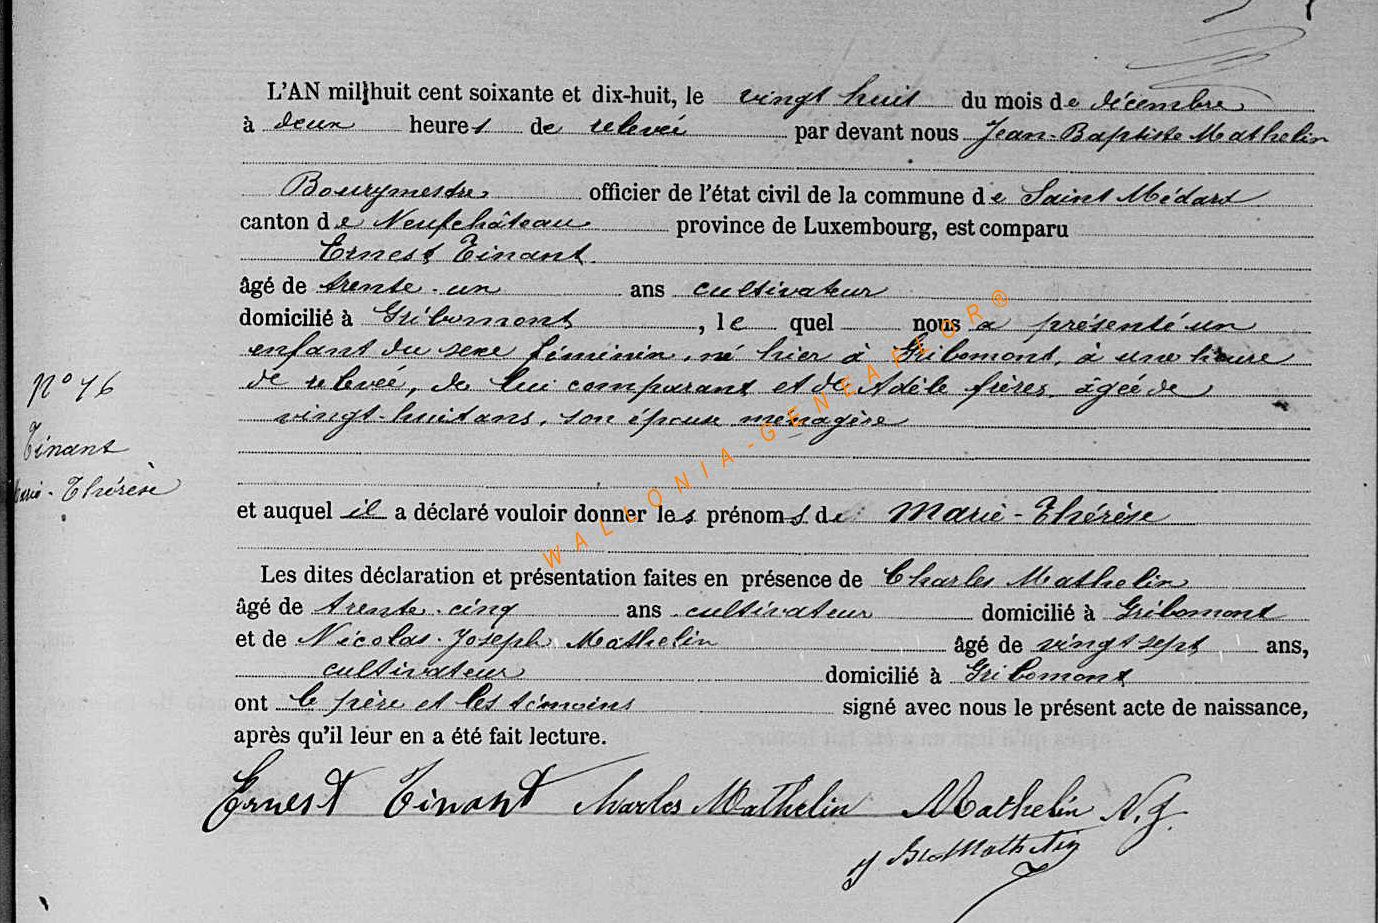 L'AN mil huit cent soixante et dix-huit, le vingt huit du mois de décembre
à deux heures de relevée par devant nous Jean-Baptiste Mathelin
Bourgmestre officier de l'état civil de la commune de Saint Médard
canton de Neufchâteau province de Luxembourg, est comparu
Ernest Tinant
âgé de trente-un ans cultivateur
domicilié à Gribomont, le quel nous a présenté un
enfant du sexe féminin, né hier à Gribomont, à une heure
de relevée, de lui comparant et de Adèle frères, âgée de
N° 46
vingt-huit ans, son épouse ménagère
Tinant
Marie-Thérèse
et auquel il a déclaré vouloir donner les prénoms de Marie-Thérèse
WALLONIA-GENEAFLOR®
Les dites déclaration et présentation faites en présence de Charles Mathelin
âgé de trente-cinq ans cultivateur domicilié à Gribomont
et de Nicolas-Joseph Mathelin âgé de vingt sept ans,
cultivateur domicilié à Gribomont
ont le père et les témoins signé avec nous le présent acte de naissance,
après qu'il leur en a été fait lecture.
Ernest Tinant Charles Mathelin Mathelin N. J.
J Bte Mathelin